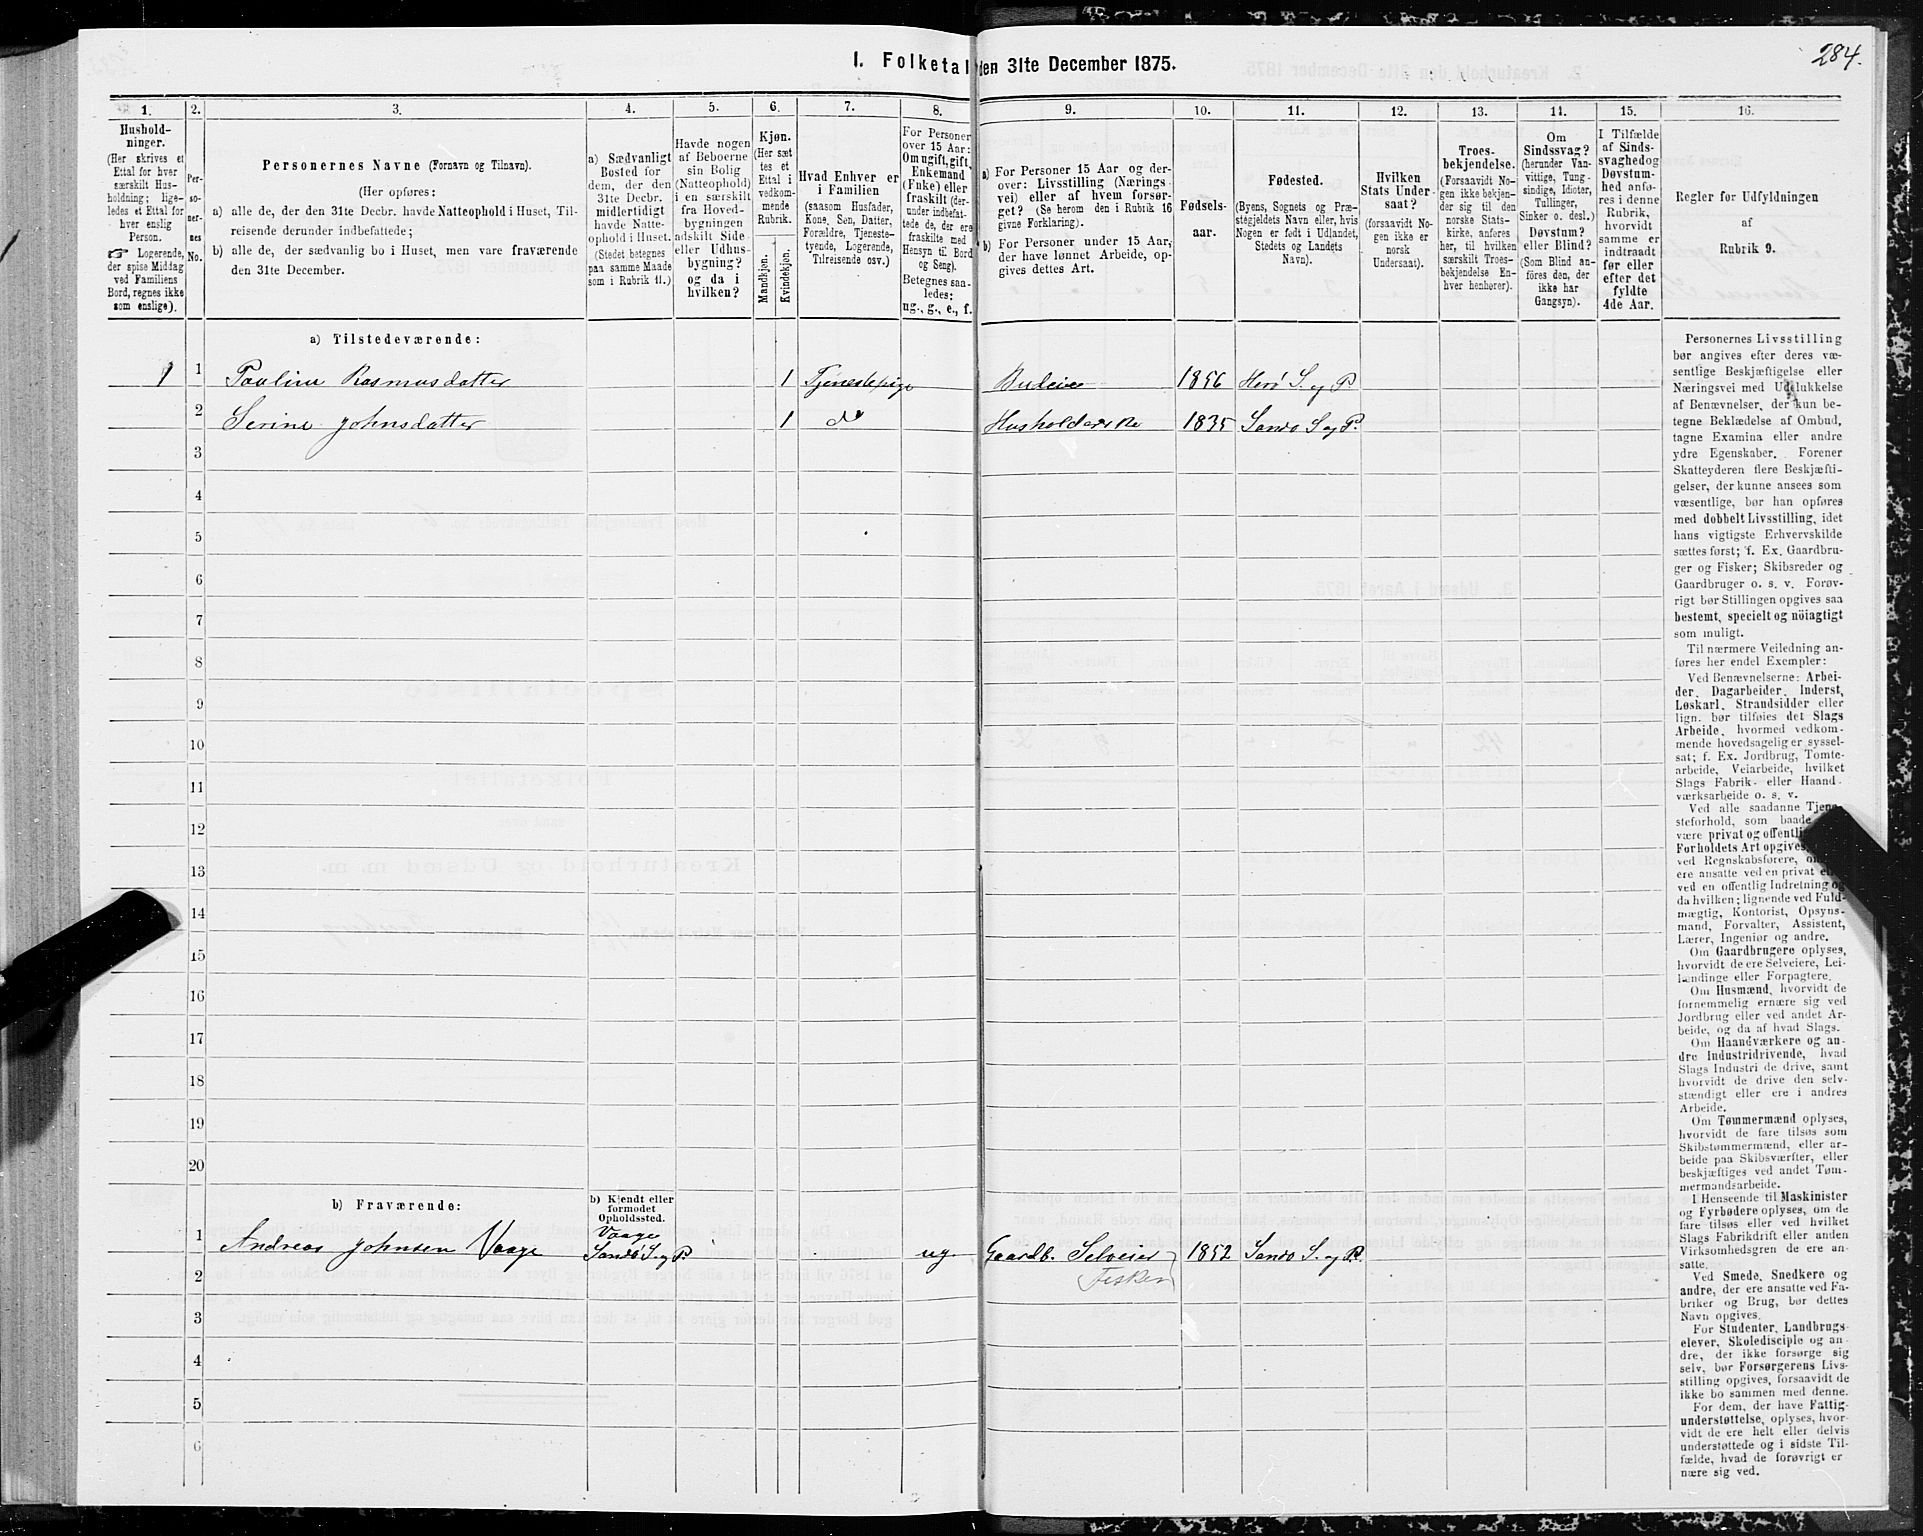 284.
1. Folketal den 31te December 1875.
1. 2. 3. 4. 5. 6. 7. 8. 9. 10. 11. 12. 13. 14. 15. 16.
Hushold-
ninger.
(Her skrives et
Ettal for hver
særskilt Hus-
holdning; lige-
ledes et Ettal for
hver enslig
Person.
☞ Logerende,
der spise Middag
ved Familiens
Bord, regnes ikke
som enslige).
Per-
so-
ner-
nes
No.
Personernes Navne (Fornavn og Tilnavn).
(Her opføres:
a) alle de, der den 31te Decbr. havde Natteophold i Huset, Til-
reisende derunder indbefattede;
b) alle de, der sædvanlig bo i Huset, men vare fraværende
den 31te December.
a) Sædvanligt
Bosted for
dem, der den
31te Decbr.
midlertidigt
havde Natte-
ophold i Huset.
(Stedet betegnes
paa samme Maade
som i Rubrik 11.)
Havde nogen
af Beboerne
sin Bolig
(Natteophold)
i en særskilt
fra Hoved-
bygningen
adskilt Side-
eller Udhus-
bygning?
og da i
hvilken?
Kjøn.
(Her sæt-
tes et
Ettal i
vedkom-
mende
Rubrik.
Mandkjøn.
Kvindekjøn.
Hvad Enhver er
i Familien
(saasom Husfader,
Kone, Søn, Datter,
Forældre, Tjeneste-
tyende, Logerende,
Tilreisende osv.)
For Personer
over 15 Aar:
Om ugift, gift,
Enkemand
(Enke) eller
fraskilt (der-
under indbefat-
tede de, der ere
fraskilte med
Hensyn til Bord
og Seng).
Betegnes saa-
ledes:
ug., g., e., f.
a) For Personer 15 Aar og der-
over: Livsstilling (Nærings-
vei) eller af hvem forsør-
get? (Se herom den i Rubrik 16
givne Forklaring).
b) For Personer under 15 Aar,
der have lønnet Arbeide, op-
gives dettes Art.
Fødsels-
aar.
Fødested.
(Byens, Sognets og Præ-
stegjeldets Navn eller, hvis
Nogen er født i Udlandet,
Stedets og Landets
Navn).
Hvilken
Stats Under-
saat?
(forsaavidt No-
gen ikke er
norsk
Undersaat).
Troes-
bekjendelse.
(Forsaavidt No-
gen ikke bekjen-
der sig til den
norske Stats-
kirke, anføres
her, til hvilken
særskilt Troes-
bekjendelse En-
hver henhører).
Om
Sindssvag?
(herunder Van-
vittige, Tung-
sindige, Idioter,
Tullinger,
Sinker o. desl.)
Døvstum?
eller Blind?
(Som Blind an-
føres den, der
ikke har
Gangsyn).
I Tilfælde
af Sinds-
svaghed og
Døvstum-
hed anfø-
res i denne
Rubrik,
hvorvidt
samme er
indtraadt
før eller
efter det
fyldte
4de Aar.
Regler for Udfyldningen
af
Rubrik 9.
a) Tilstedeværende:
1 1 Pauline Rasmusdatter 1 Tjenestepige Budeie 1856 Herø S. og P.
2 Serine Johnsdatter 1 do Husholderske 1835 Sandø S og P.
3
4
5
6
7
8
9
10
11
12
13
14
15
16
17
18
19
20
b) Fraværende:
b) Kjendt eller
formodet
Opholdssted.
Vaage
1 Andreas Johnsen Vaage Sandø S. og P. ug. Gaardb. Selveier 1852 Sandø S. og P.
2 Fisker
3
4
5
6
Personernes Livsstilling
bør angives efter deres væ-
sentlige Beskjæftigelse eller
Næringsvei med Udelukkelse
af Benævnelser, der kun be-
tegne Beklædelse af Ombud,
tagne Examina eller andre
ydre Egenskaber. Forener
Skatteyderen flere Beskjæfti-
gelser, der kunne ansees som
væsentlige, bør han opføres
med dobbelt Livsstilling, idet
hans vigtigste Erhvervskilde
sættes først; f. Ex. Gaardbru-
ger og Fisker; Skibsreder og
Gaardbruger o. s. v. Forøv-
rigt bør Stillingen opgives saa
bestemt, specielt og nöiagtigt
som muligt.
Til nærmere Veiledning an-
føres her endel Exempler:
Ved Benævnelserne: Arbei-
der, Dagarbeider, Inderst,
Løskarl, Strandsidder eller
lign. bør tilføies det Slags
Arbeide, hvormed vedkom-
mende hovedsagelig er syssel-
sat; f. Ex. Jordbrug, Tomte-
arbeide, Veiarbeide, hvilket
Slags Fabrik- eller Haand-
værksarbeide o. s. v.
Ved alle saadanne Tjene-
steforhold, som baade
være privat og offentli
Forholdets Art opgives,
ved Regnskabsførere, om
ere ansatte ved en privat e
ved en offentlig Indretning og
da hvilken; lignende ved Fuld-
mægtig, Kontorist, Opsyns-
mand, Forvalter, Assistent,
Lærer, Ingeniør og andre.
Om Gaardbrugere oplyses,
hvorvidt de ere Selveiere, Lei-
lændinge eller Forpagtere.
Om Husmænd, hvorvidt de
fornemmelig ernære sig ved
Jordbrug eller ved andet Ar-
beide, og da af hvad Slags.
Om Haandværkere og an-
dre Industridrivende, hvad
Slags Industri de drive, samt
hvorvidt de drive den selv-
stændigt eller ere i andres
Arbeide.
Om Tømmermænd oplyses,
hvorvidt de fare tilsøs som
Skibstømmermænd, eller ar-
beide paa Skibsværfter, eller
beskjæftiges ved andet Tøm-
mermandsarbeide.
I Henseende til Maskinister
og Fyrbødere oplyses, om de
fare tilsøs eller ved hvilket
Fabrikdrift eller anden
Virksomhedsgren de ere an-
satte.
Ved Smede, Snedkere og
andre, der ere ansatte ved Fa-
briker og Brug, bør dettes
Navn opgives.
For Studenter, Landbrugs-
elever, Skoledisciple og an-
dre, der ikke forsørge sig
selv, bør Forsørgerens Livs-
stilling opgives, forsaavidt de
ikke bo sammen med denne.
For dem, der have Fattig-
understøttelse, oplyses, hvor-
vidt de ere helt eller delvis
understøttede og i sidste Til-
fælde, hvad de forøvrigt er
nære sig ved.